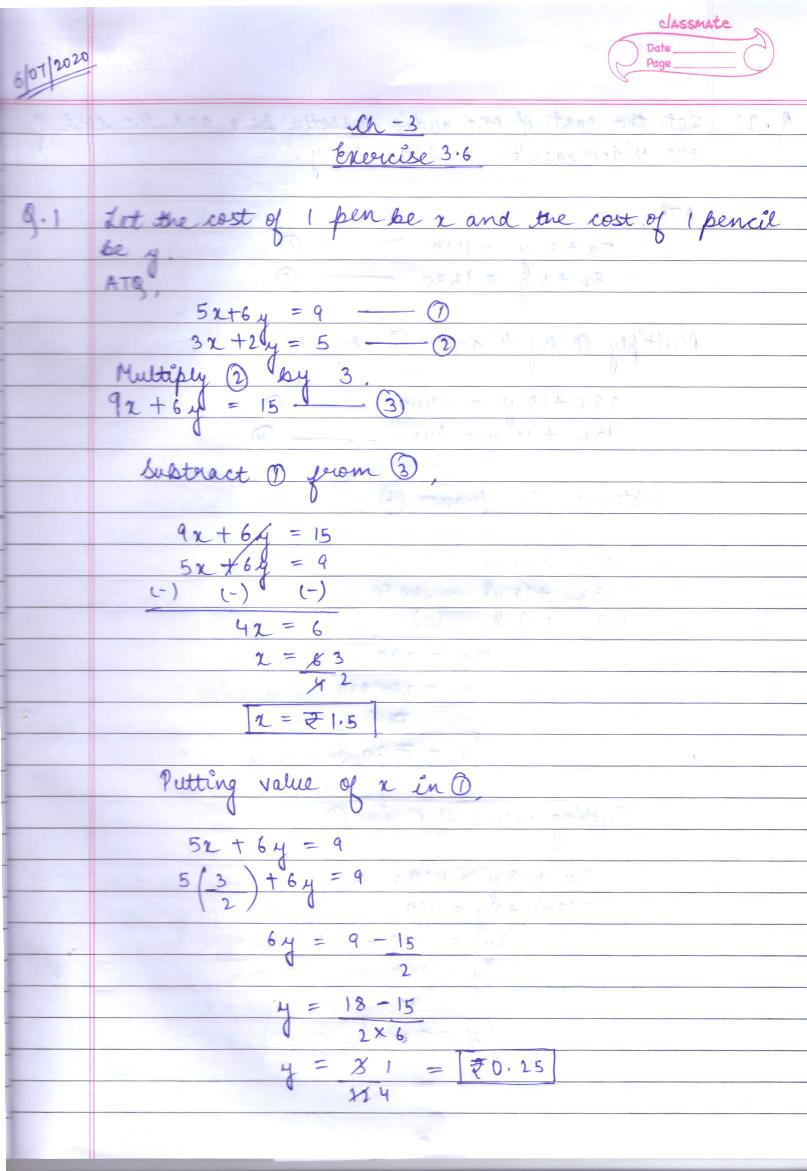 classmate
Date
Page
6/07/2020
Ch - 3
Exercise 3.6
Q.1 Let the cost of 1 pen be x and the cost of 1 pencil
be y.
ATQ,
5x+6y = 9 —— ①
3x+2y = 5 —— ②
Multiply ② by 3.
9x+6y = 15 —— ③
Subtract ① from ③,
9x+6y = 15
5x+6y = 9
(-) (-) (-)
4x = 6
x = 6 3
4 2
x = ₹1.5
Putting value of x in ①,
5x + 6y = 9
5(3/2)+6y = 9
6y = 9 - 15
2
y = 18-15
2×6
y = 3 1 = ₹0.25
12 4